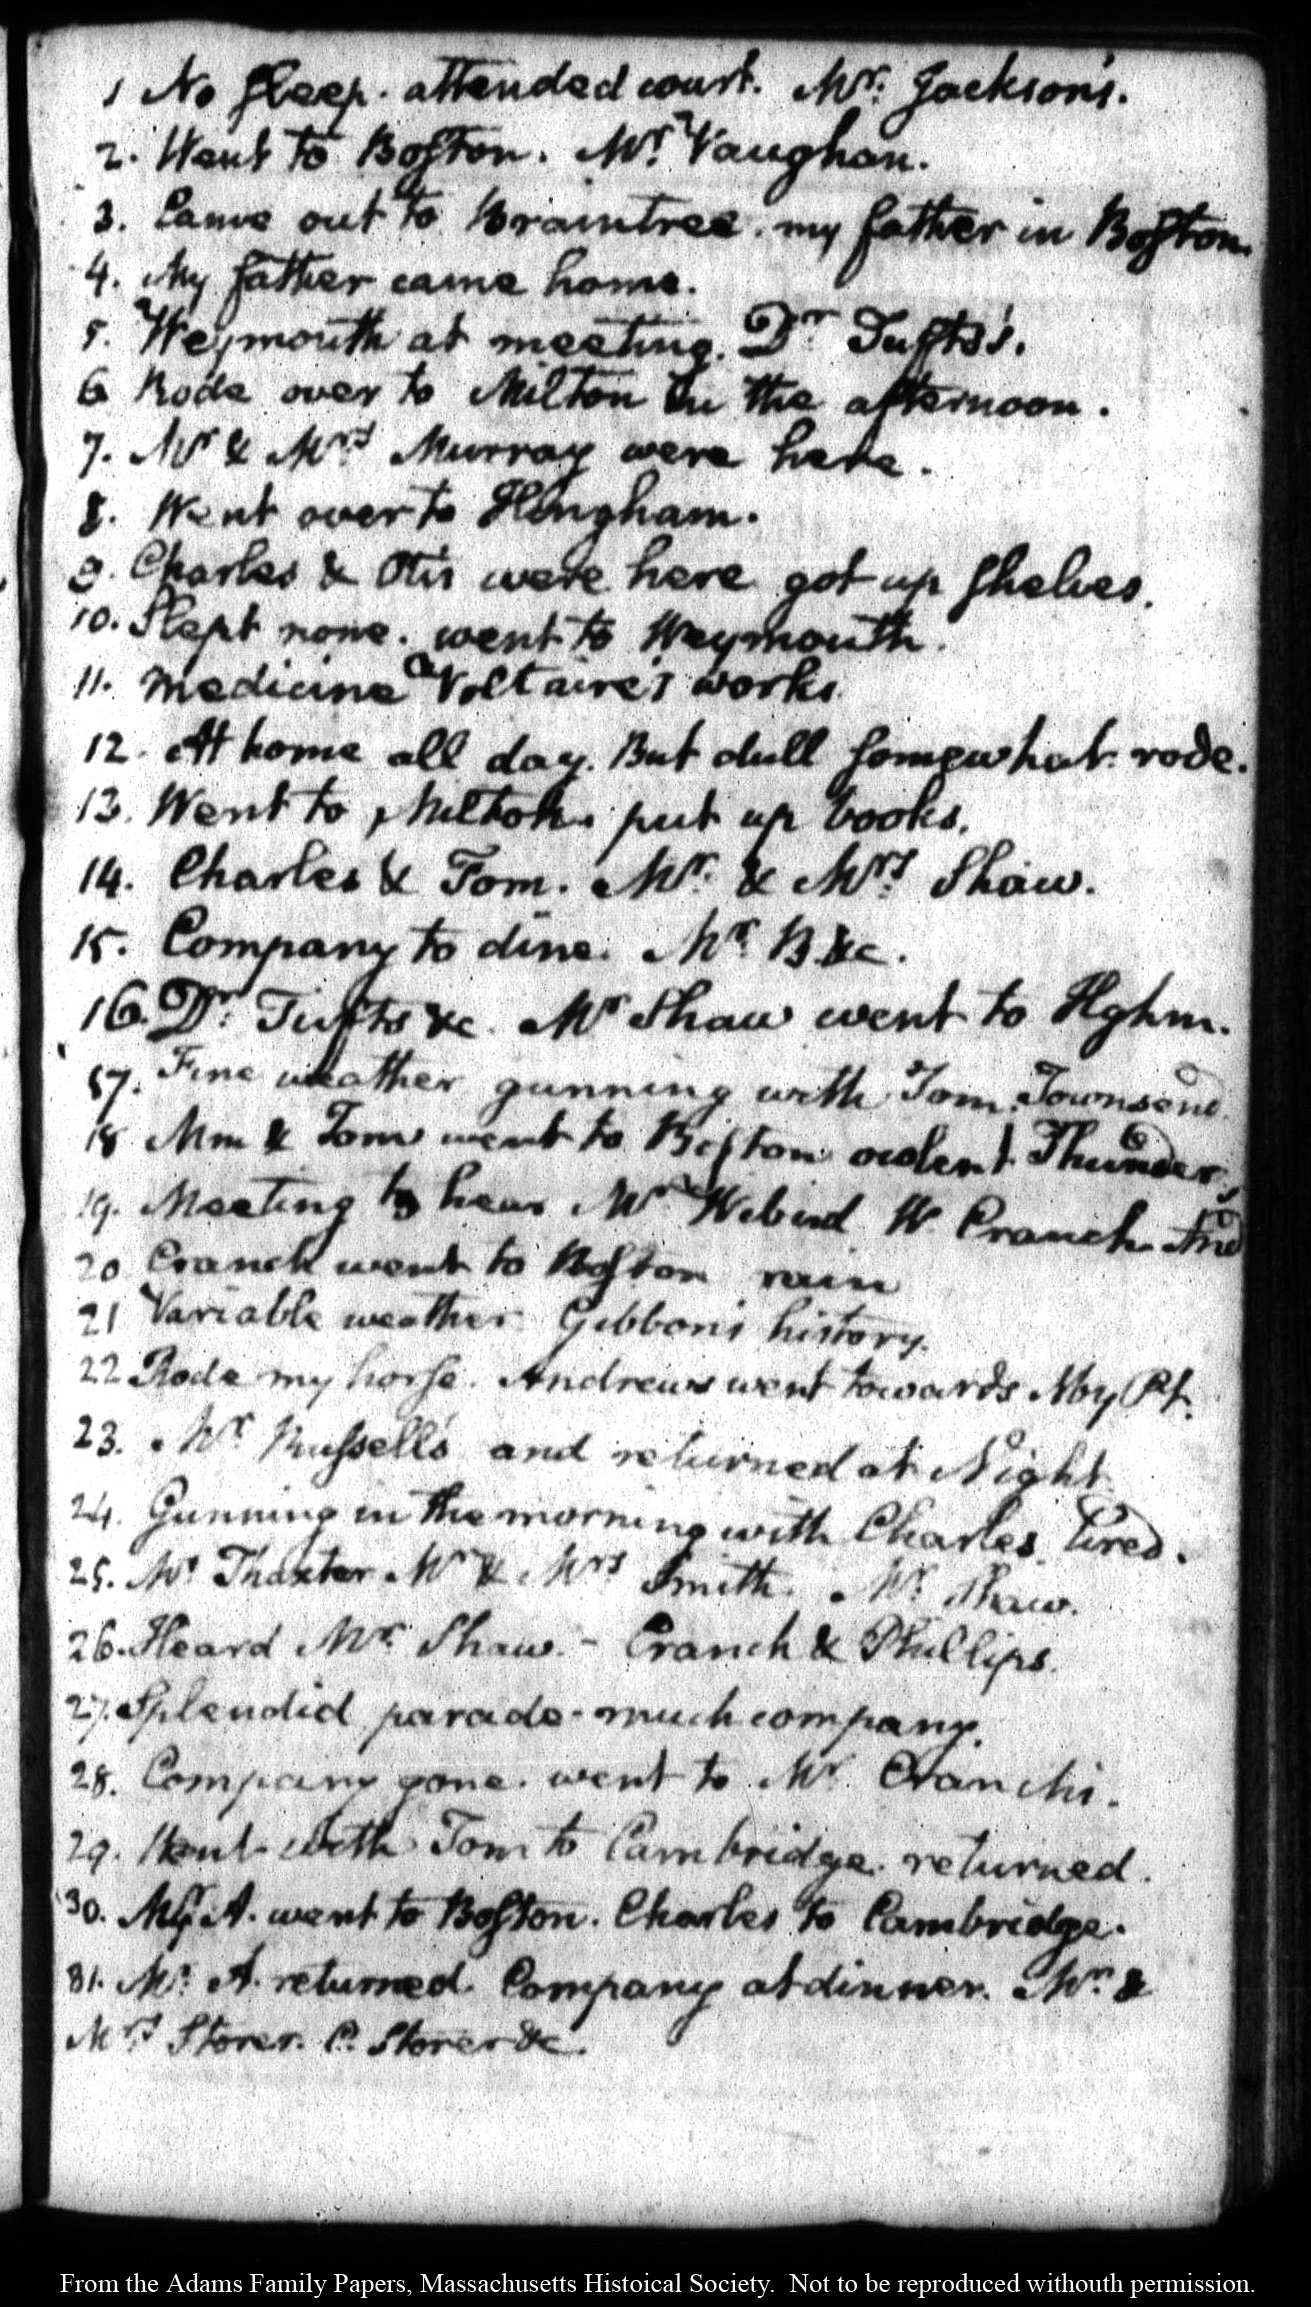 1 No sleep. attended court. Mr. Jackson's.
2. Went to Boston. Mr. Vaughan.
3. Came out to Braintree. my father in Boston.
4. My father came home.
5. Weymouth at meeting. Dr Tufts's.
6 Rode over to Milton in the afternoon.
7. Mr & Mrs Murray were here.
8. Went over to Hingham.
9. Charles & Otis were here got up shelves.
10. Slept none. went to Weymouth.
11. Medicine Voltaire's works
12. At home all day. But dull somewhat. rode.
13. Went to Milton. put up books.
14. Charles & Tom. Mr. & Mrs Shaw.
15. Company to dine. Mr. B. &c.
16. Dr. Tufts &c. Mr Shaw went to Hghm.
17. Fine weather gunning with Tom. Townsend
18 Mm & Tom went to Boston violent Thunder
19. Meeting to hear Mr Wibird W. Cranch. And
20 Cranch went to Boston rain
21 Variable weather. Gibbon's history.
22 Rode my horse. Andrews went towards
23. Mr Russell's and returned at Night
24. Gunning in the morning with Charles. tired.
25. Mr Thaxter Mr & Mrs Smith. Mr. Shaw.
26. Heard Mr. Shaw. - Cranch & Phillips.
27. Splendid parade - much company.
28. Company gone. went to Mr Cranch's.
29. Went with Tom to Cambridge. returned.
30. A. went to Boston. Charles to Cambridge.
31. Mr. A. returned. Company at dinner. Mr. &
Mrs Storer. C. Storer &c.
From the Adams Family Papers, Massachusetts Histoical Society. Not to be reproduced withouth permission.